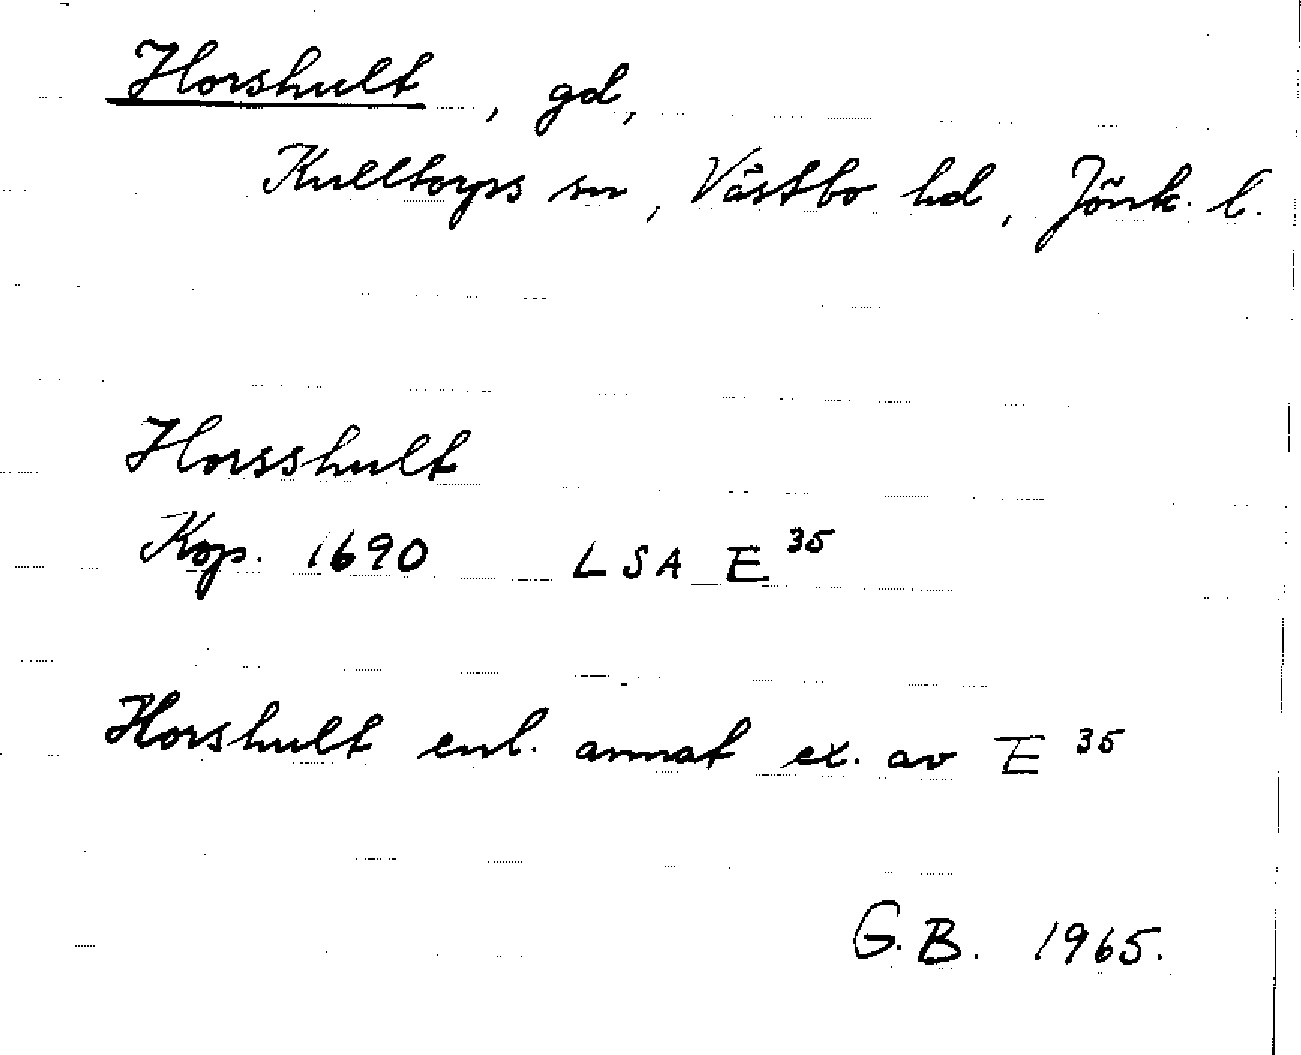 Horshult, gd,
Kulltorps sn, Västbo hd, Jönk. l.
Horsshult
Kop. 1690 LSA E 35
Horshult enl. annat ex. av E 35
G.B. 1965.